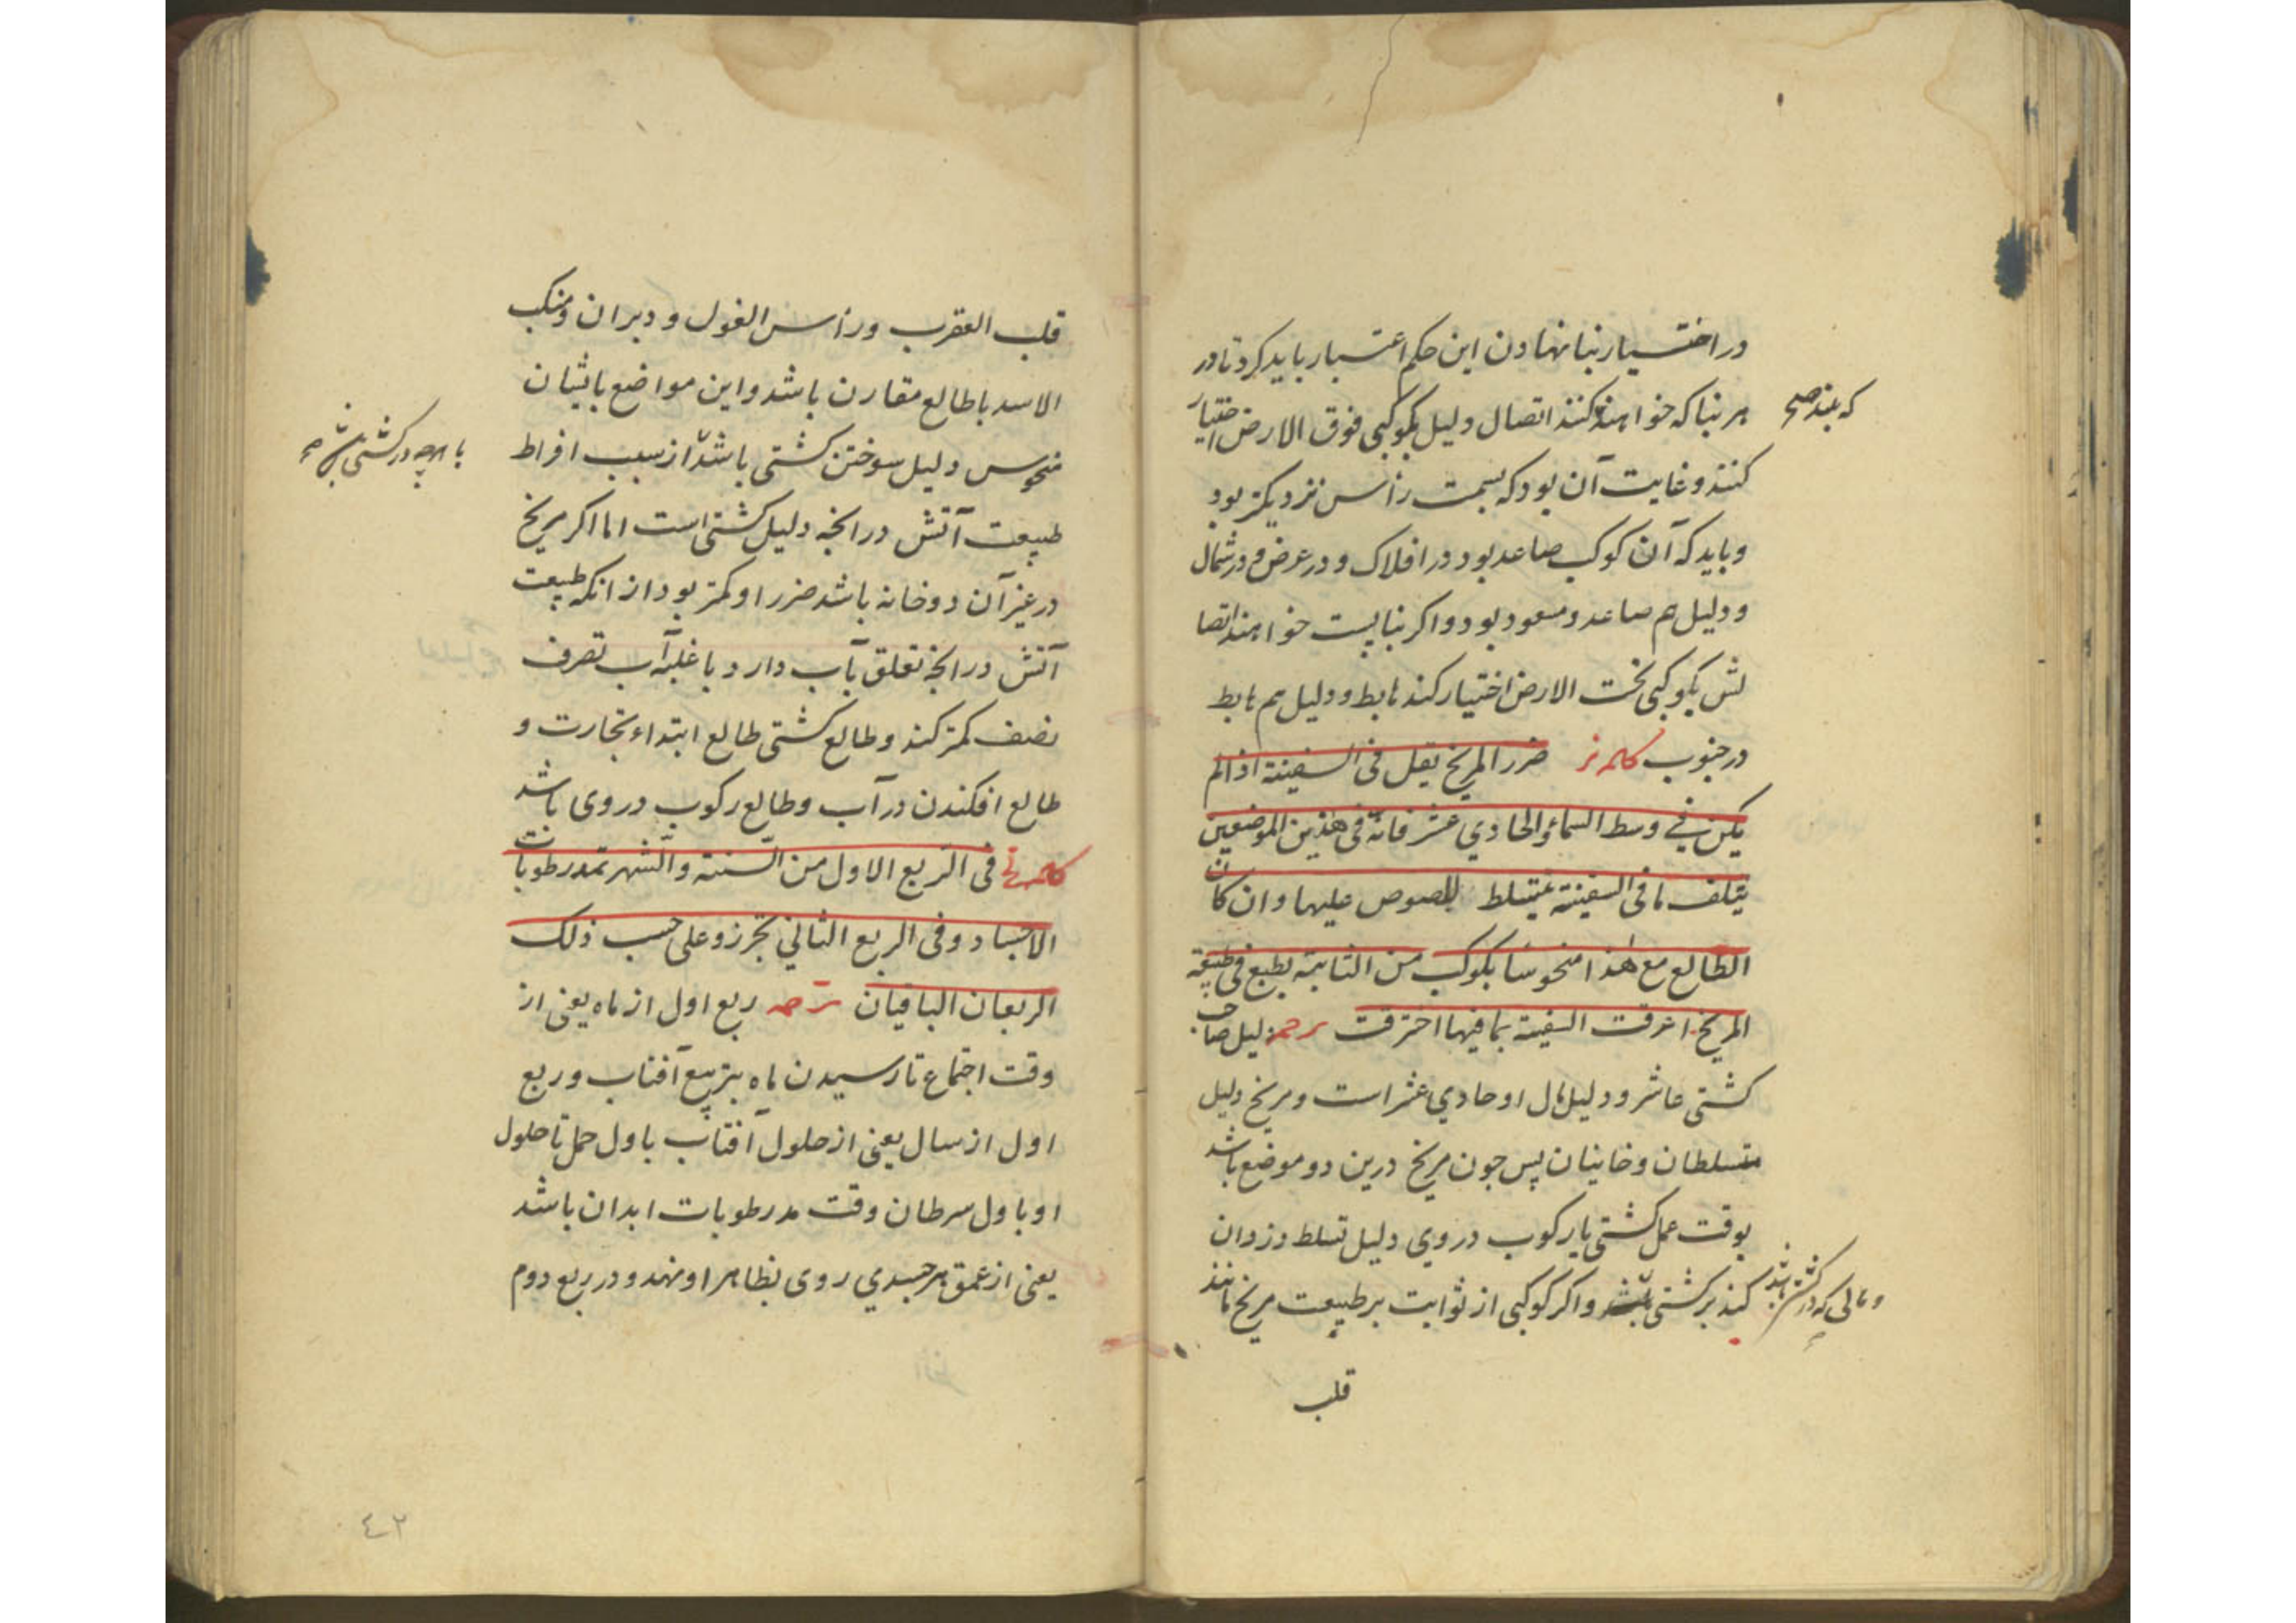 در اختیار بنا نهادن این حکم اعتبار باید کرد تا در
هر بنا که خواهند کنند اتصال دلیل بکوکبی فوق الارض اختیار
که بلند صح
کنند و غایت آن بود که بسمت رأس نزدیکتر بود
و باید که آن کوکب صاعد بود در افلاک و در عرض و در شمال
و دلیل هم صاعد و مسعود بود و اکر بنا پست خواهند اتصا
لش بکوکبی تحت الارض اختیار کند هابط و دلیل هم هابط
در جنوب کلمه نز ضرر المریخ یقل فی السفینة اذا لم
یکن فی وسط السماء و الحادي عشر فانه فی هذین الموضعین
یتلف ما فی السفینة بتسلط اللصوص علیها و ان کان
الطالع مع هذا منحوسا بکوکب من الثابتة بطبع فی طبیعة
المریخ احرقت السفینة بما فیها احترقت ترجمه دلیل صاحب
کشتی عاشر و دلیل مال او حادي عشر است و مریخ دلیل
متسلطان و خاینان پس جون مریخ درین دو موضع باشد
بوقت عمل کشتی یا رکوب در وي دلیل تسلط دزدان
کند بر کشتی باشد و اکر کوکبی از ثوابت بر طبیعت مریخ مانند
و مالی که در کشتی باشد
قلب
قلب العقرب و رأس الغول و دبران و منکب
الاسد با طالع مقارن باشد و این مواضع باثیان
منحوس دلیل سوختن کشتی باشد از سبب افراط
با هرچه در کشتی باشد صح
طبیعت آتش در انجه دلیل کشتی است اما اکر مریخ
در غیر آن دو خانه باشد ضرر او کمتر بود از انکه طبیعت
آتش در انجه تعلق بآب دارد با غلبه آب تصرف
نصف کمتر کند و طالع کشتی طالع ابتداء تجارت و
طالع افکندن در آب و طالع رکوب در وی باشد
کلمه نح فی الربع الاول من السنة و الشهر تمد رطوبات
الاجساد و فی الربع الثاني تحرز و علی حسب ذلک
الربعان الباقیان ترجمه ربع اول از ماه یعنی از
وقت اجتماع تا رسیدن ماه بتربیع آفتاب و ربع
اول از سال یعنی از حلول آفتاب باول حمل تا حلول
او باول سرطان وقت مد رطوبات ابدان باشد
یعنی از عمق هر جسدي روی بظاهر او نهد و در ربع دوم
٤٢